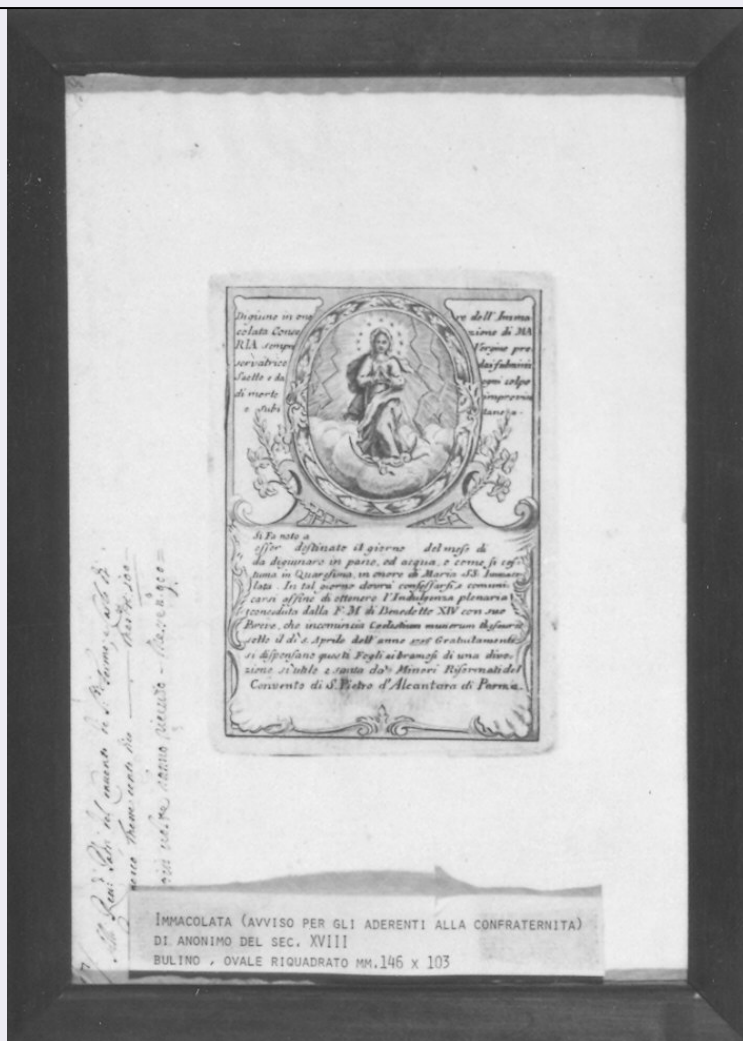 Digiuno in ono re dell' Imma
colata Conce zione di MA
RIA sempre Vergine pre
servatrice dai fulmini
Saette e da ogni colpo
di morte improvvi
e subi tanea.
Si Fa noto a
esser destinato il giorno del mese di
da digiunare in pane, ed acqua, o come si cos
tuma in Quaresima, in onore di Maria SS. Immaco
lata. In tal giorno dovrà confessarsi, e comuni
carsi affine di ottenere l'Indulgenza plenaria
conceduta dalla F. M. di Benedetto XIV con suo
Breve, che incomincia Coelestium munerum thesauros
sotto il dì Aprile dell' anno Gratuitamente
si dispensano questi Fogli ai bramosi di una divo
zione sì utile e santa da' Minori Riformati del
Convento di S. Pietro d'Alcantara di Parma.
IMMACOLATA (AVVISO PER GLI ADERENTI ALLA CONFRATERNITA)
DI ANONIMO DEL SEC. XVIII
BULINO , OVALE RIQUADRATO MM.146 X 103